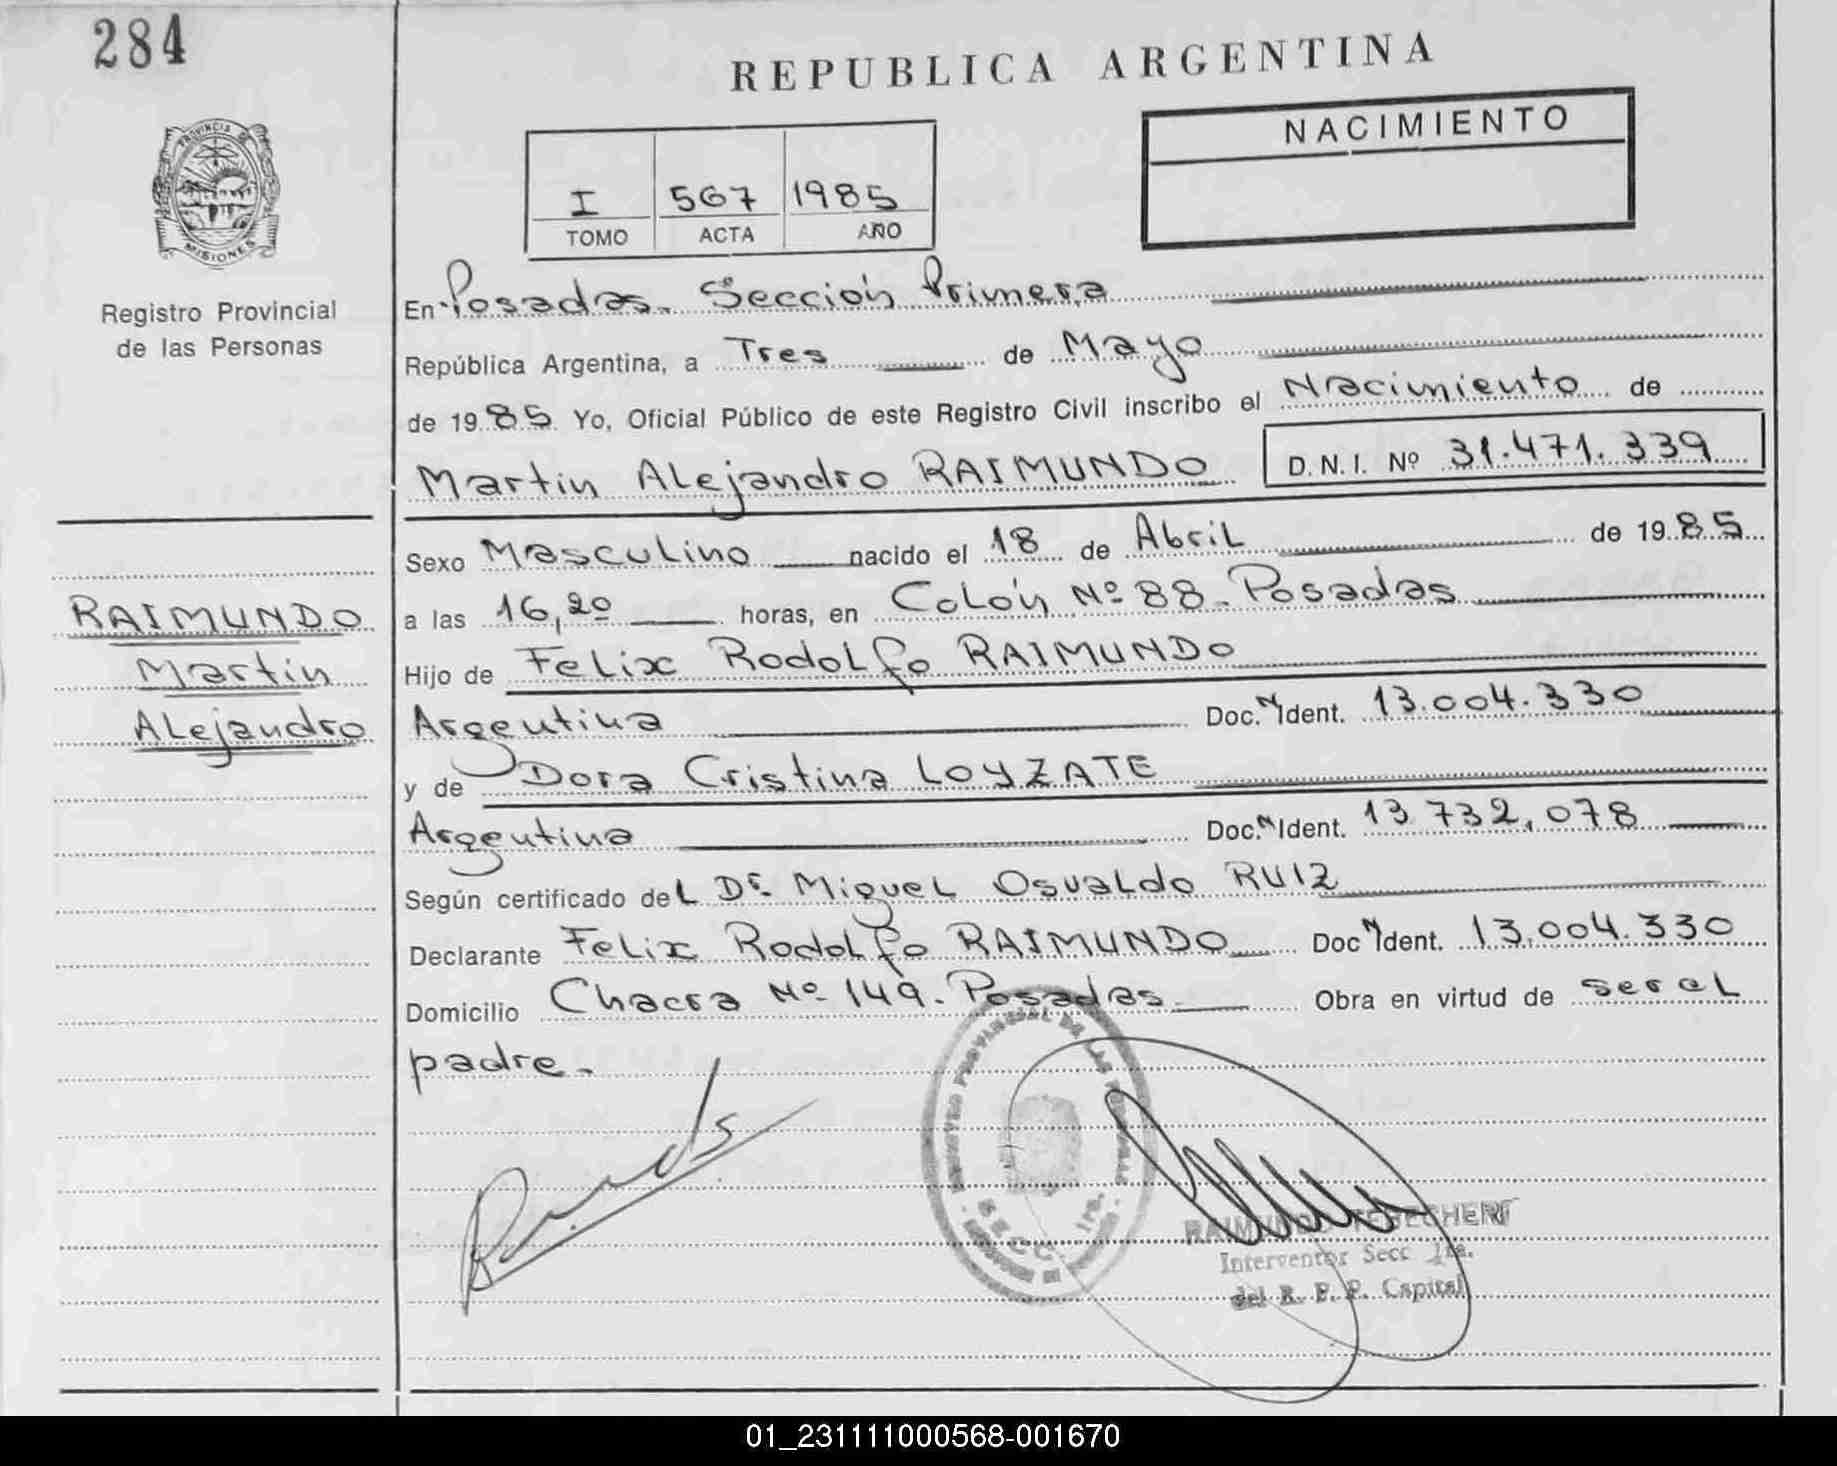 284
REPUBLICA ARGENTINA
NACIMIENTO
PROVINCIA DE
MISIONES
I 567 1985
TOMO ACTA AÑO
Registro Provincial
de las Personas
En Posadas. Sección Primera
República Argentina, a Tres de Mayo
de 1985 Yo, Oficial Público de este Registro Civil inscribo el Nacimiento de
Martin Alejandro RAIMUNDO D.N.I. Nº 31.471.339
Sexo Masculino nacido el 18 de Abril de 1985
a las 16,20 horas, en Colón Nº 88. Posadas
Hijo de Felix Rodolfo RAIMUNDO
Argentina Doc. N Ident. 13.004.330
y de Dora Cristina LOYZATE
Argentina Doc. N Ident. 13 732,078
Según certificado del Dr. Miguel Osvaldo RUIZ
Declarante Felix Rodolfo RAIMUNDO Doc N Ident. 13.004.330
Domicilio Chacra Nº 149. Posadas Obra en virtud de ser el
padre.
RAIMUNDO
Martin
Alejandro
REGISTRO PROVINCIAL DE LAS PERSONAS
SECC. 1ra.
RAIMUNDO
Interventor Secc 1ra.
del R. P. P. Capital
01_231111000568-001670